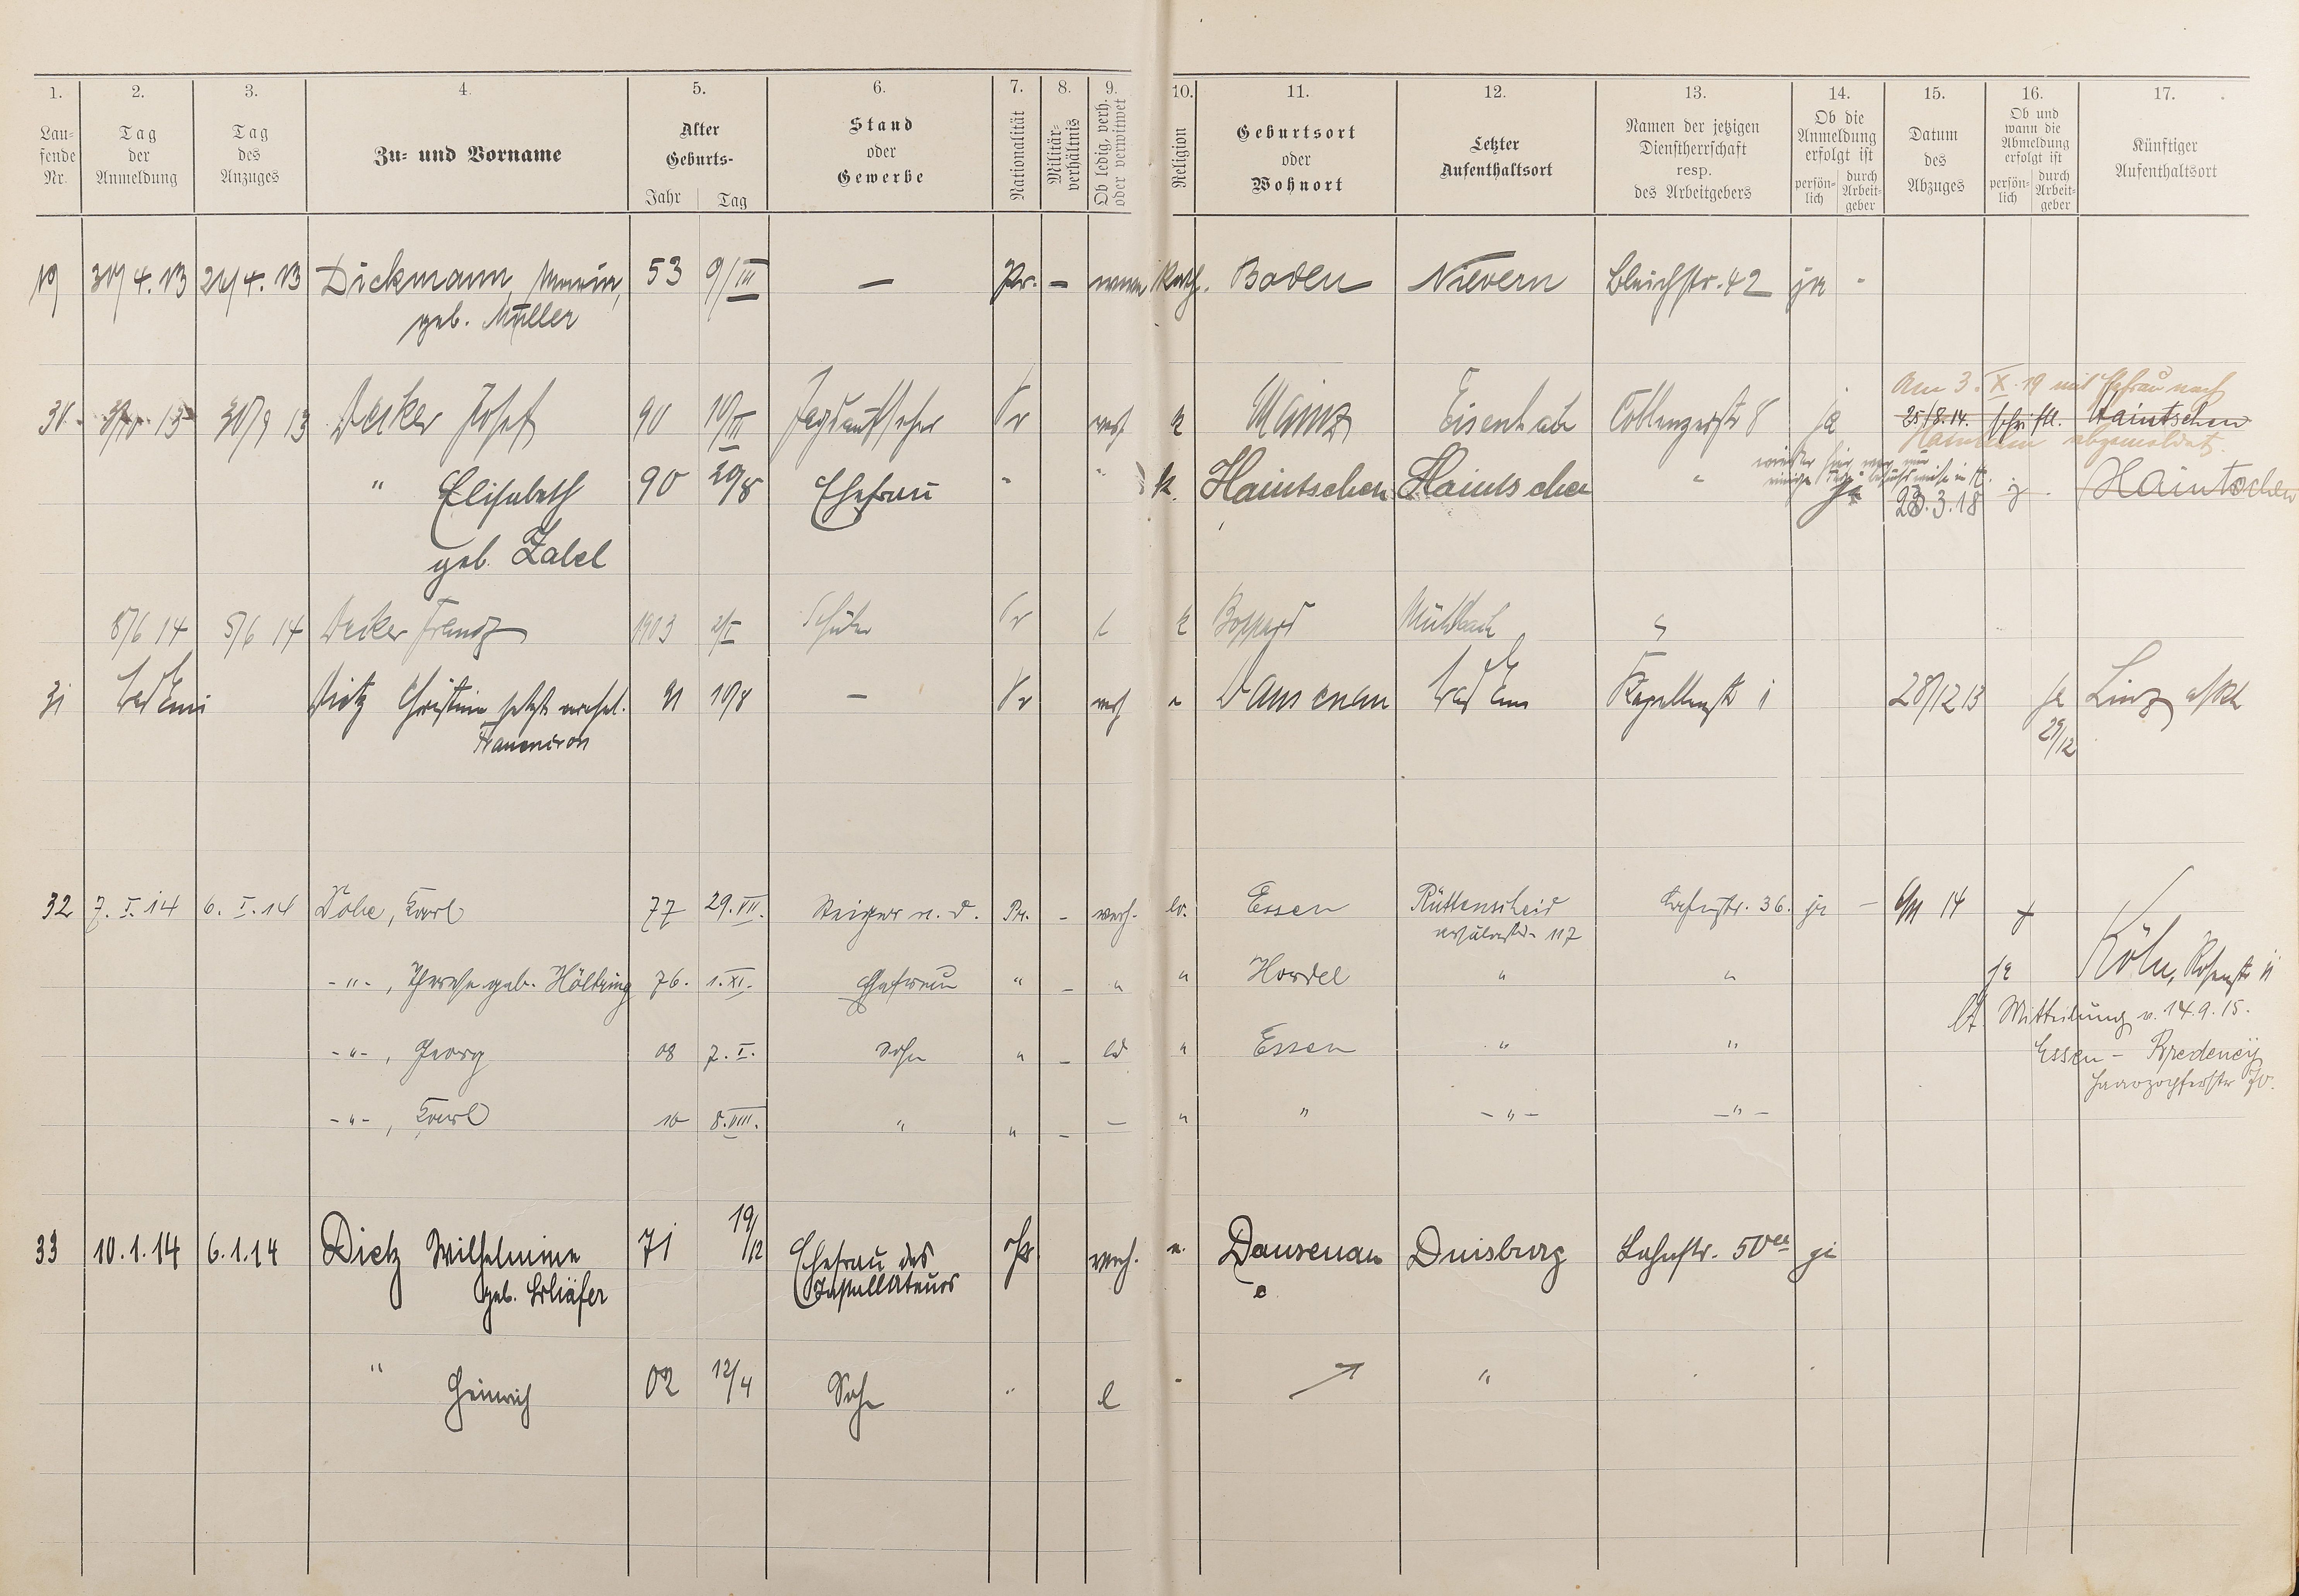 1. 2. 3. 4. 5. 6. 7. 8. 9. 10. 11. 12. 13. 14. 15. 16. 17.
Lau-
fende
Nr.
Tag
der
Anmeldung
Tag
des
Anzuges
Zu- und Vorname
Alter
Geburts-
Jahr Tag
Stand
oder
Gewerbe
Nationalität
Militär-
verhältnis
Ob ledig, verh.
oder verwitwet
Religion
Geburtsort
oder
Wohnort
Letzter
Aufenthaltsort
Namen der jetzigen
Dienstherrschaft
resp.
des Arbeitgebers
Ob die
Anmeldung
erfolgt ist
persön-
lich
durch
Arbeit-
geber
Datum
des
Abzuges
Ob und
wann die
Abmeldung
erfolgt ist
persön-
lich
durch
Arbeit-
geber
Künftiger
Aufenthaltsort
4. 13 4. 13 Dickmann, 53 9/III — Pr. – Kath. Boden Nievern Bleichstr. 42 ja -
geb. Müller
Am 3. X. 19 mit Ehefrau nach
30 30/9 13 Decker Josef 90 10/III Jagdaufseher Pr verh k Mainz Coblenzerstr 8 ja 25/8.14. schriftl. Haintschen
Haintchen abgemeldet.
" Elisabeth 90 29/8 Ehefrau " " k. Haintschen Haintschen " ja 23.3.18 j. Haintschen
geb. Zabel
8/6 14 5/6 14 Decker Franz 1903 Schüler Pr l k Boppard Mühlbach "
31 Bad Ems Dietz Christine jetzt verehel. 91 10/8 — Pr verh e Dausenau Bad Ems Kapellenstr 1 28/12 13 ja Linz a/Rh
29/12
32 7. I. 14 6. I. 14 Döhe, Karl 77 29. VII. Steiger a. D. Pr. – verh. ev. Essen Rüttenscheid 36. ja – 14
117
-"- , Therese geb. Hölting 76. 1. XI. Ehefrau " – " " Hordel " " ja Köln, Rosenstr 11
lt. Mitteilung v. 14.9.15.
-"- , Georg 08 7. I. Sohn " – led " Essen " " Essen – Bredeney
-"- , Karl 10 8. VIII. " " – – " " -"- -"-
33 10.1.14 6.1.14 Dietz Wilhelmine 71 19/12 Ehefrau des Pr. verh. e. Dausenau Duisburg Lahnstr. 50 ja
geb. Schäfer Installateurs
" Heinrich 02 12/4 Sohn " l " "